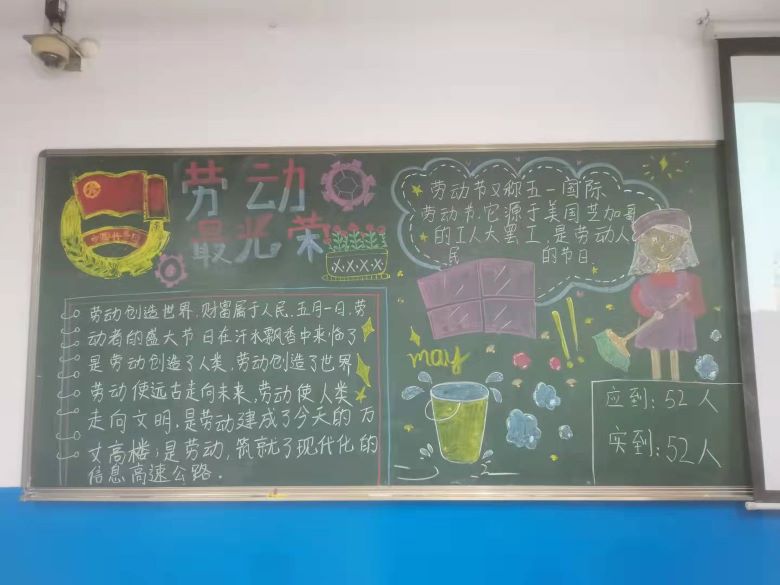 劳动
最光荣
劳动创造世界,财富属于人民.五月一日,劳
动者的盛大节日在汗水飘香中来临了
是劳动创造了人类,劳动创造了世界
劳动使远古走向未来,劳动使人类
走向文明,是劳动建成了今天的万
丈高楼;是劳动,筑就了现代化的
信息高速公路.
劳动节又称五一国际
劳动节.它源于美国芝加哥
的工人大罢工,是劳动人
民的节日.
may
应到:52人
实到:52人